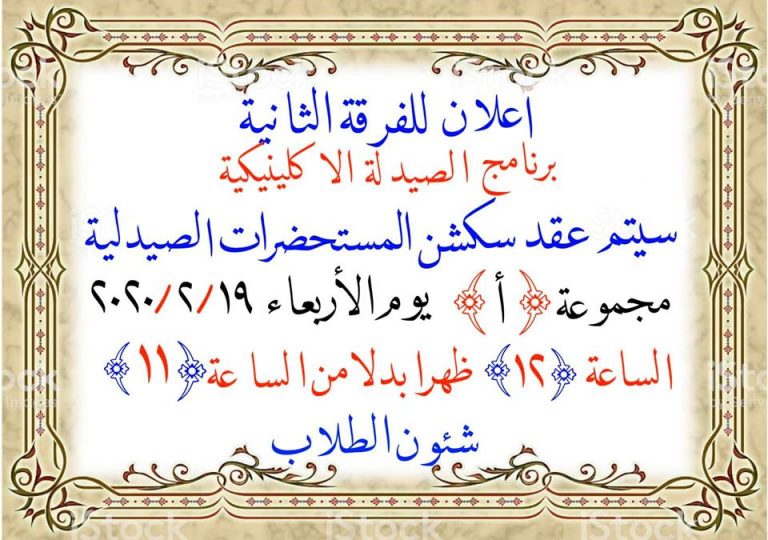 اعلان للفرقة الثانية
برنامج الصيدلة الاكلينيكية
سيتم عقد سكشن المستحضرات الصيدلية
مجموعة ﴿ أ ﴾ يوم الأربعاء ٢٠٢٠/٢/١٩
الساعة ﴿١٢﴾ ظهرا بدلا من الساعة ﴿١١﴾
شئون الطلاب
iStock
iStock
iStock